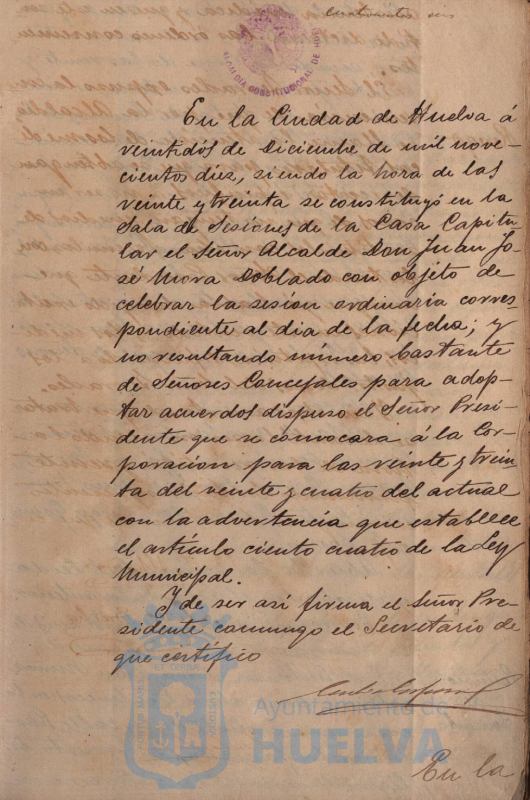 cuatrocientos seis
ALCALDIA CONSTITUCIONAL DE HUELVA
En la Ciudad de Huelva á
veintidós de Diciembre de mil nove-
cientos diez, siendo la hora de las
veinte y treinta se constituyó en la
Sala de Sesiones de la Casa Capitu-
lar el Señor Alcalde Don Juan Jo-
sé Mora Doblado con objeto de
celebrar la sesión ordinaria corres-
pondiente al dia de la fecha; y
no resultando número bastante
de Señores Concejales para adop-
tar acuerdos dispuso el Señor Presi-
dente que se convocara á la Cor-
poracion para las veinte y trein-
ta del veinte y cuatro del actual
con la advertencia que establece
el artículo ciento cuatro de la Ley
Municipal.
Y de ser así firma el Señor Pre-
sidente conmigo el Secretario de
que certifico
Ayuntamiento de
HUELVA
En la